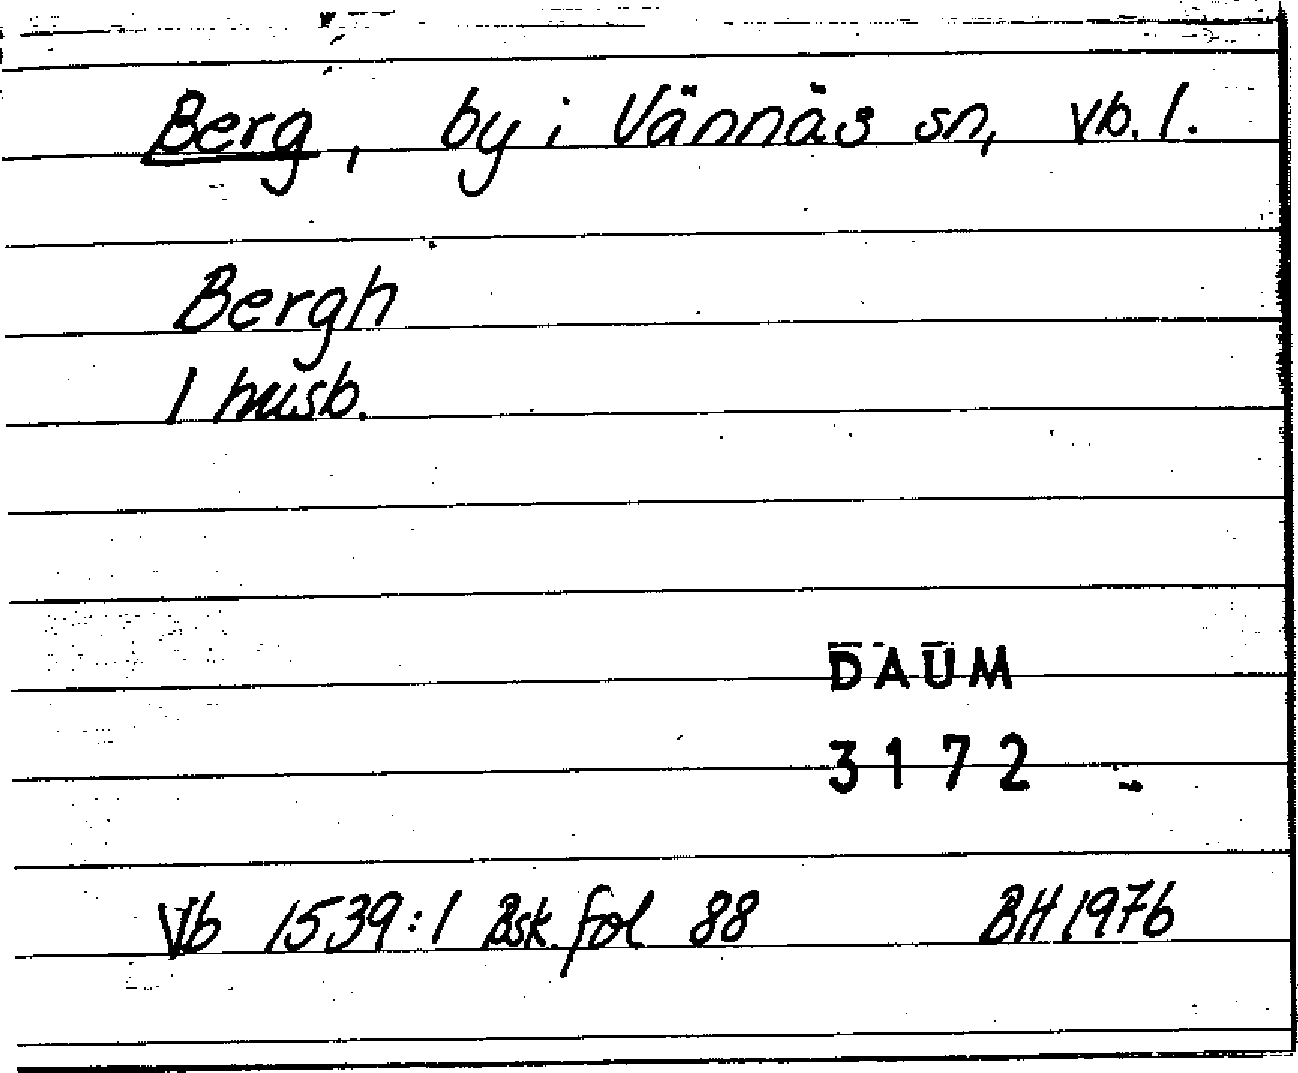 Berg, by i Vännäs sn, Vb. l.
Bergh
1 husb.
DAUM
3172
Vb 1539:1 Bsk. fol 88 BH 1976